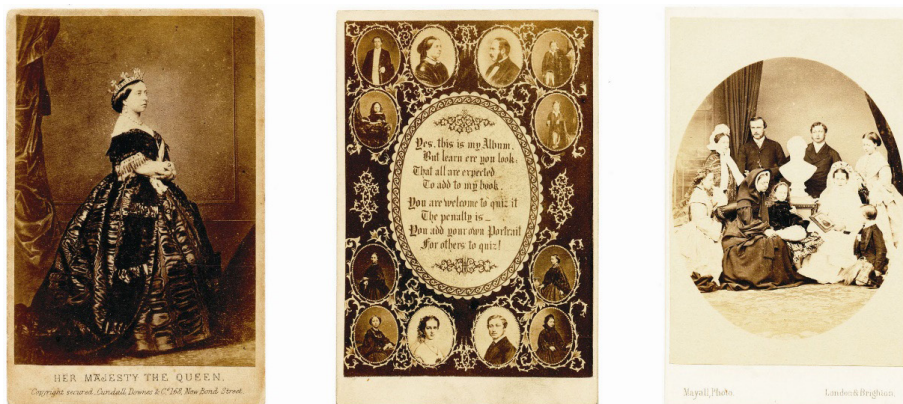 HER MAJESTY THE QUEEN.
Copyright secured, Cundall, Downes & Co. 168, New Bond Street.
Yes, this is my Album,
But learn ere you look;
That all are expected
To add to my book.
You are welcome to quiz it
The penalty is_
You add your own Portrait
For others to quiz!
Mayall, Photo. London & Brighton.